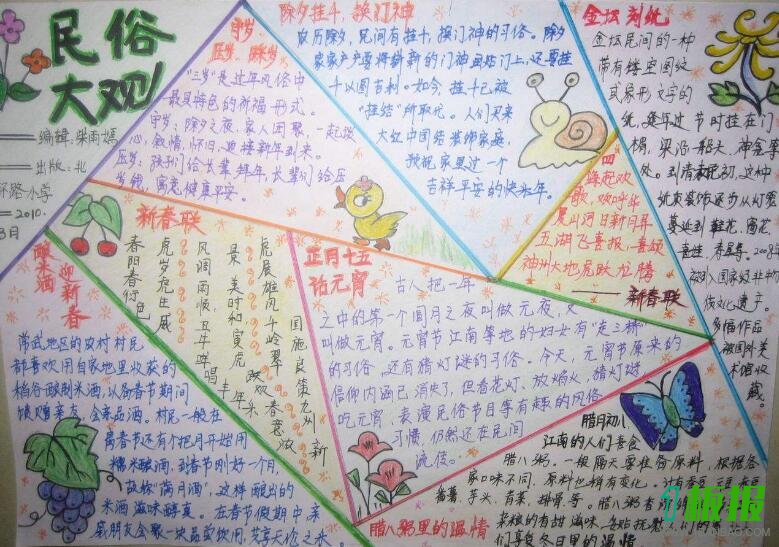 民俗
大观
编辑:柴雨嫣
出版:北
环路小学
2010.
守岁
压岁、踩岁
"三岁"是过年风俗中
最具特色的祈福形式。
守岁:除夕之夜,家人团聚,一起谈
心,叙情,怀旧,迎接新年到来。
压岁:孩子们给长辈拜年,长辈们给压
岁钱,寓意健康平安。
除夕挂千,换门神
农历除夕,民间有挂千,换门神的习俗。除夕
家家户户要将新的门神画贴门上,还要挂
千以图吉利。如今,挂千已被
"挂结"所取代。人们买来
大红中国结装饰家庭,
预祝家里过一个
吉祥平安的快乐年。
金坛刻纸
金坛民间的一种
带有镂空图纹
或象形文字的
纸,每年过节时挂在门
楣、梁沿、船头、神龛等
处。到清末民初,这种
纸
蔓延到鞋花、窗花
2008年
被列入国家级非物
质文化遗产。
多幅作品
被国外美
术馆收
藏。
四海起欢
歌,欢呼华
夏山河日新月异
五湖飞喜报,喜颂
神州大地虎跃龙腾
——新春联
新春联
春阴春行色
虎岁虎生威
风调雨顺,五年咩唱丰年乐
景美时和寅虎跃欢春意浓
虎展雄风千岭翠
国施良策九州新
正月十五
话元宵
古人把一年
之中的第一个圆月之夜叫做元夜,又
叫做元宵。元宵节江南等地的妇女有"走三桥"
的习俗,还有猜灯谜的习俗。今天,元宵节原来的
信仰内涵已消失了,但看花灯、放焰火、猜灯谜
吃元宵、表演民俗节目等有趣的风俗
习惯,仍然还在民间
流传。
酿米酒
迎新春
常武地区的农村村民
都喜欢用自家地里收获的
稻谷酿制米酒,以备春节期间
馈赠亲友、全家品酒。村民一般在
离春节还有个把月开始用
糯米酿酒,到春节刚好一个月,
故称"满月酒"。这样酿出的
米酒滋味醇真。在春节假期中,亲
戚朋友会聚一块品尝饮用,其享天伦之乐。
腊八粥里的温情
腊月初八,
江南的人们喜食
腊八粥。一般隔天要准备原料,根据各
家口味不同,原料也稍有变化。
芋头、青菜、排骨等。腊八粥
们享受冬日里的温情
板报